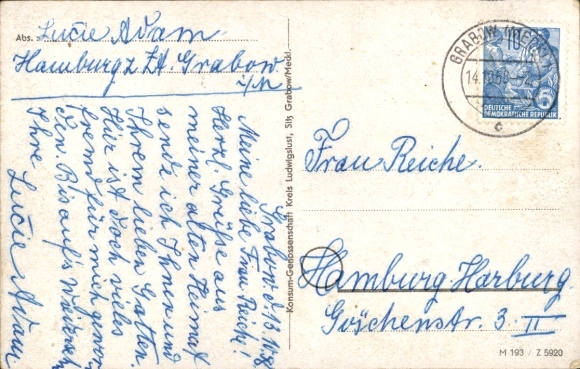 Abs. Lucie Adam
Hamburg z. Zt. Grabow
i/M
Grabow d. 13.
Meine liebe Frau Reiche!
Herzl. Grüße aus
meiner alten Heimat
sende ich Ihnen und
Ihrem lieben Gatten.
Hier ist doch vieles
fremd für mich gewor
den. Bis auf's Wiederseh
Ihre
Lucie Adam.
Konsum-Genossenschaft Kreis Ludwigslust, Sitz Grabow/Meckl.
GRABOW (MECKL)
14.
c
10
DEUTSCHE
DEMOKRATISCHE REPUBLIK
Frau Reiche.
Hamburg Harburg.
Goschenstr. 3 II
M 193 / Z 5920